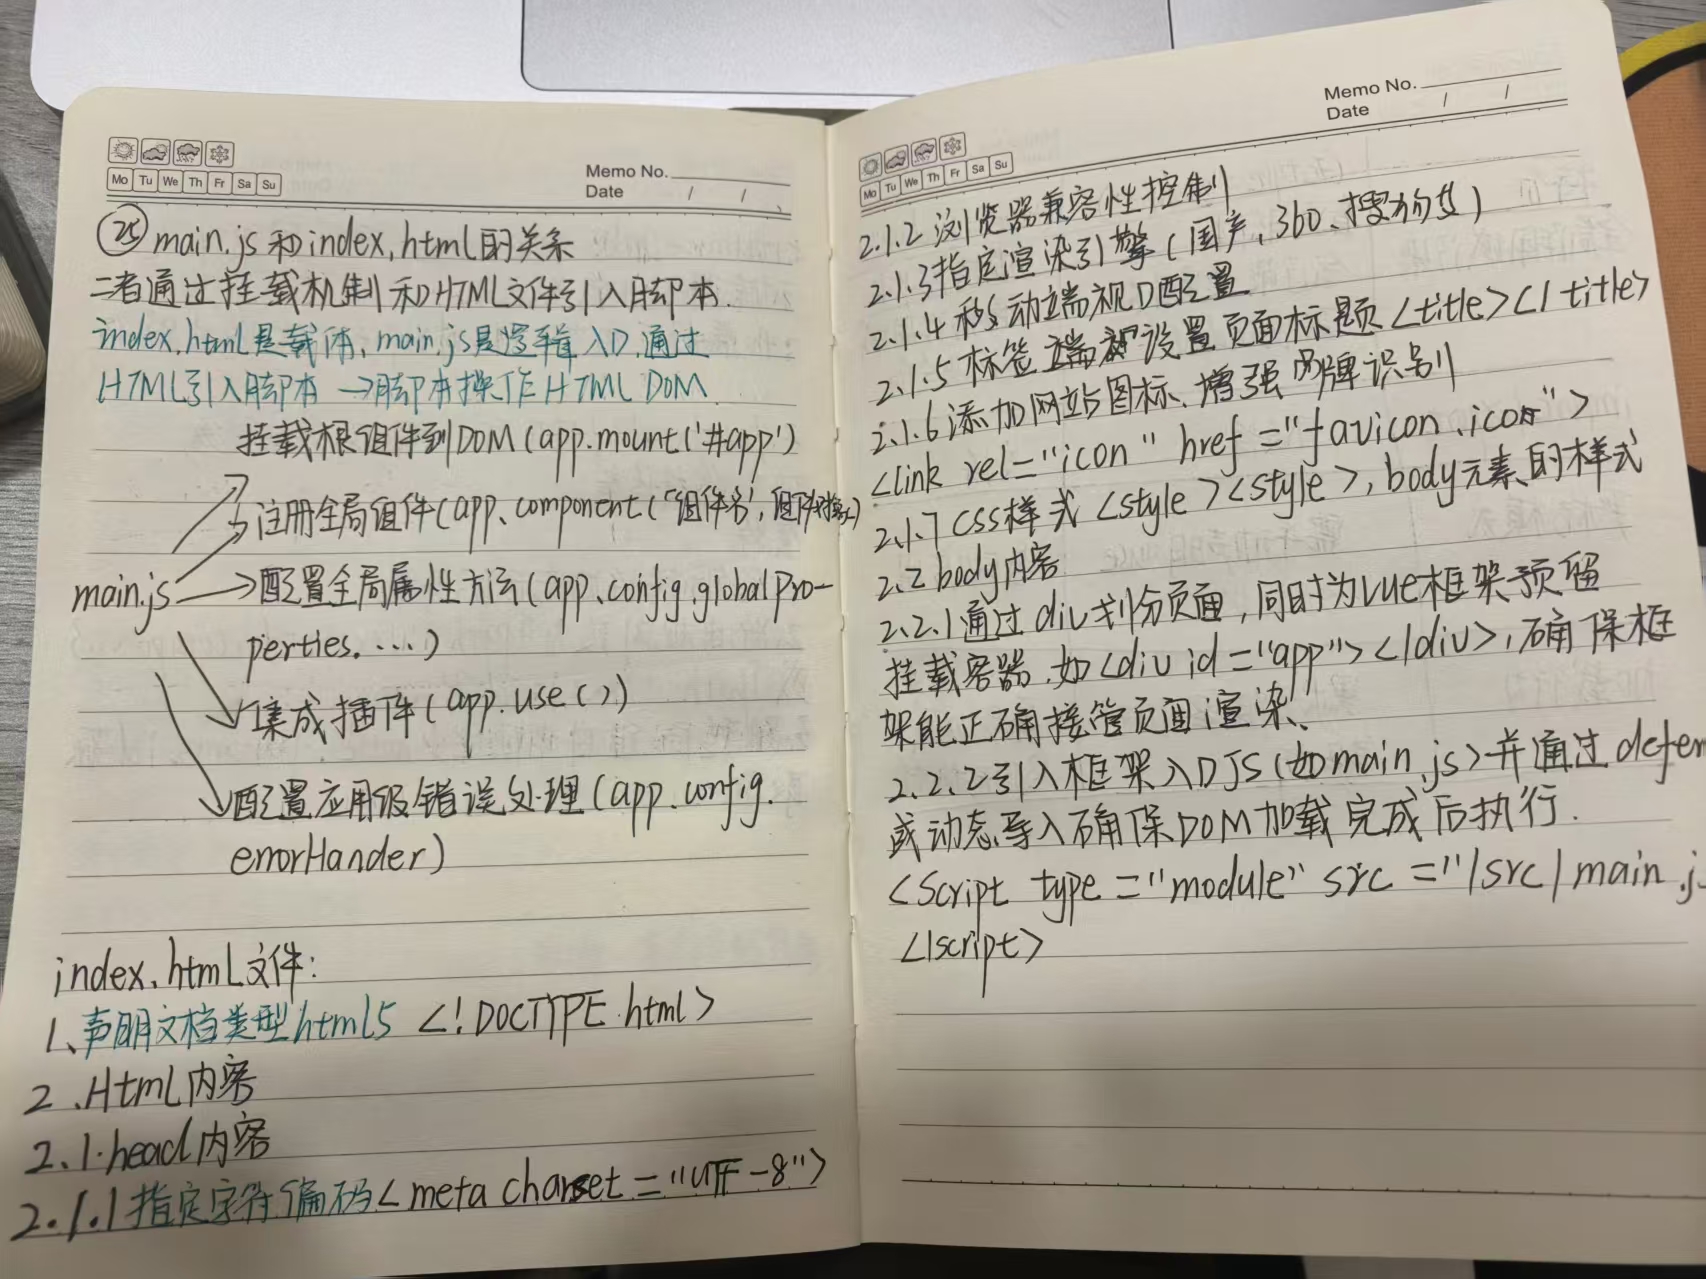 Mo Tu We Th Fr Sa Su
Memo No.
Date / /
㉕ main.js和index.html的关系
二者通过挂载机制和HTML文件引入脚本.
index.html是载体、main.js是逻辑入口,通过
HTML引入脚本 →脚本操作HTML DOM.
挂载根组件到DOM(app.mount('#app')
注册全局组件(app.component("组件名', 组件对象)
main.js →配置全局属性方法(app.config.globalPro-
perties. ....)
集成插件(app.use())
配置应用级错误处理(app.config.
errorHander)
index.html文件:
1、声明文档类型html5 <!DOCTYPE html>
2.Html内容
2.1.head内容
2.1.1指定字符偏码<meta charset="UTF-8">
Mo Tu We Th Fr Sa Su
Memo No.
Date / /
2.1.2浏览器兼容性控制
2.1.3指定渲染引擎(国产、360、搜狗等)
2.1.4移动端视口配置
2.1.5标签端 设置页面标题<title></title>
2.1.6添加网站图标、增强品牌识别
<link rel="icon" href="favicon.icon">
2.1.7 CSS样式<style><style>, body元素的样式
2.2 body内容
2.2.1通过div划分页面,同时为vue框架预留
挂载容器.如<div id="app"></div>,确保框
架能正确接管页面渲染、
2.2.2引入框架入口JS(如main.js)并通过defer
或动态导入确保DOM加载完成后执行.
<script type="module" src="/src/main.j
</script>